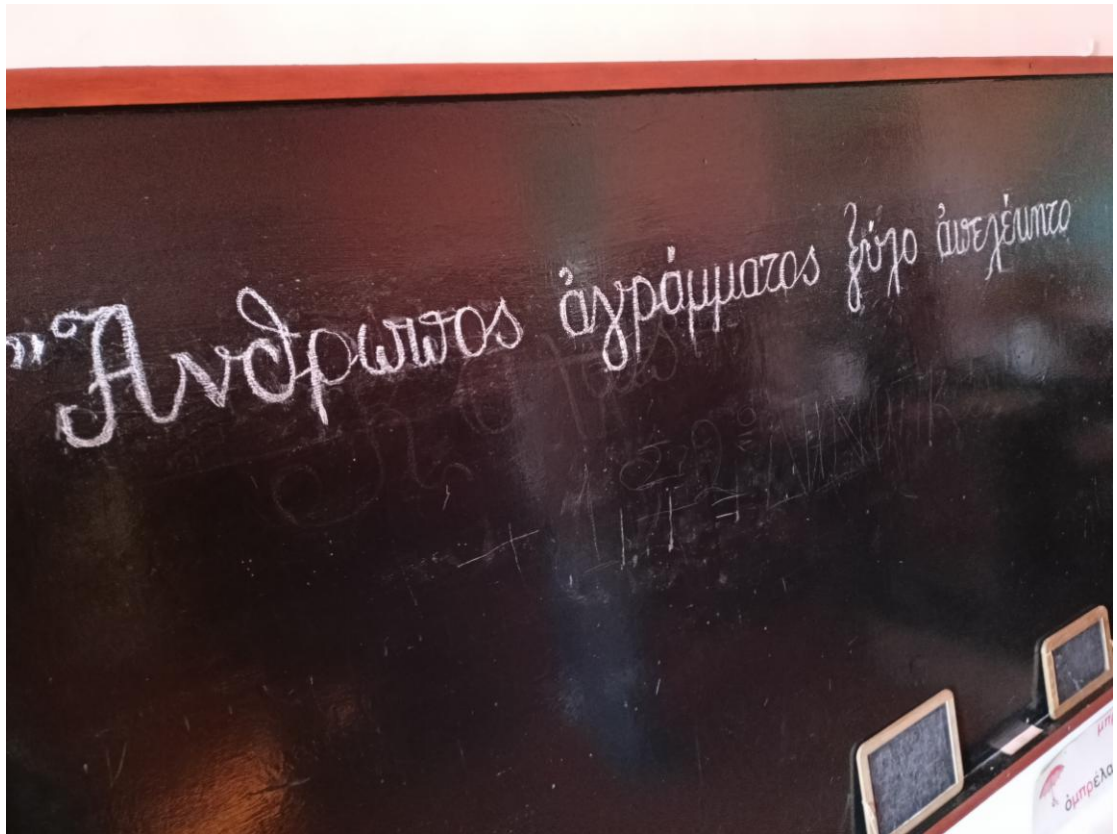 "Ἄνθρωπος ἀγράμματος ξύλο ἀπελέκητο
ὀμπρέλα